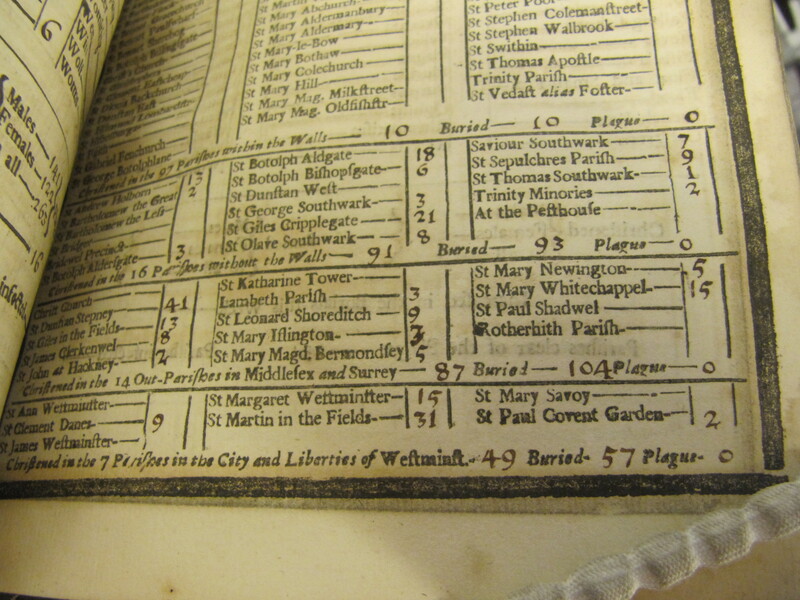 6
Males — 141
Females —
all — 265
16
St Mary Abchurch
St Mary Aldermanbury
St Mary Aldermary
St Mary-le-Bow
St Mary Bothaw
St Mary Colechurch
St Mary Hill
St Mary Mag. Milkſtreet
St Mary Mag. Oldfiſhſtr
St Peter Poor
St Stephen Colemanſtreet
St Stephen Walbrook
St Swithin
St Thomas Apoſtle
Trinity Pariſh
St Vedaſt alias Foſter
Chriſtened in the 97 Pariſhes within the Walls — 10 Buried — 10 Plague — 0
St Andrew Holborn 13
St Bartholomew the Great 2
St Bartholomew the Leſs
St Bridget
Bridewel Precinct
St Botolph Alderſgate 3
St Botolph Aldgate 18
St Botolph Biſhopſgate 6
St Dunſtan Weſt
St George Southwark 3
St Giles Cripplegate 21
St Olave Southwark 8
Saviour Southwark 7
St Sepulchres Pariſh 9
St Thomas Southwark 1
Trinity Minories 2
At the Peſthouſe
Chriſtened in the 16 Pariſhes without the Walls — 91 Buried — 93 Plague — 0
Chriſt Church
St Dunſtan Stepney 41
St Giles in the Fields 13
St James Clerkenwel 8
St John at Hackney 2
St Katharine Tower
Lambeth Pariſh 3
St Leonard Shoreditch 9
St Mary Iſlington
St Mary Magd. Bermondſey 5
St Mary Newington 5
St Mary Whitechappel 15
St Paul Shadwel
Rotherhith Pariſh
Chriſtened in the 14 Out-Pariſhes in Middleſex and Surrey — 87 Buried — 104 Plague — 0
St Ann Weſtminſter
St Clement Danes 9
St James Weſtminſter
St Margaret Weſtminſter 15
St Martin in the Fields 31
St Mary Savoy
St Paul Covent Garden 2
Chriſtened in the 7 Pariſhes in the City and Liberties of Weſtminſt. 49 Buried 57 Plague 0